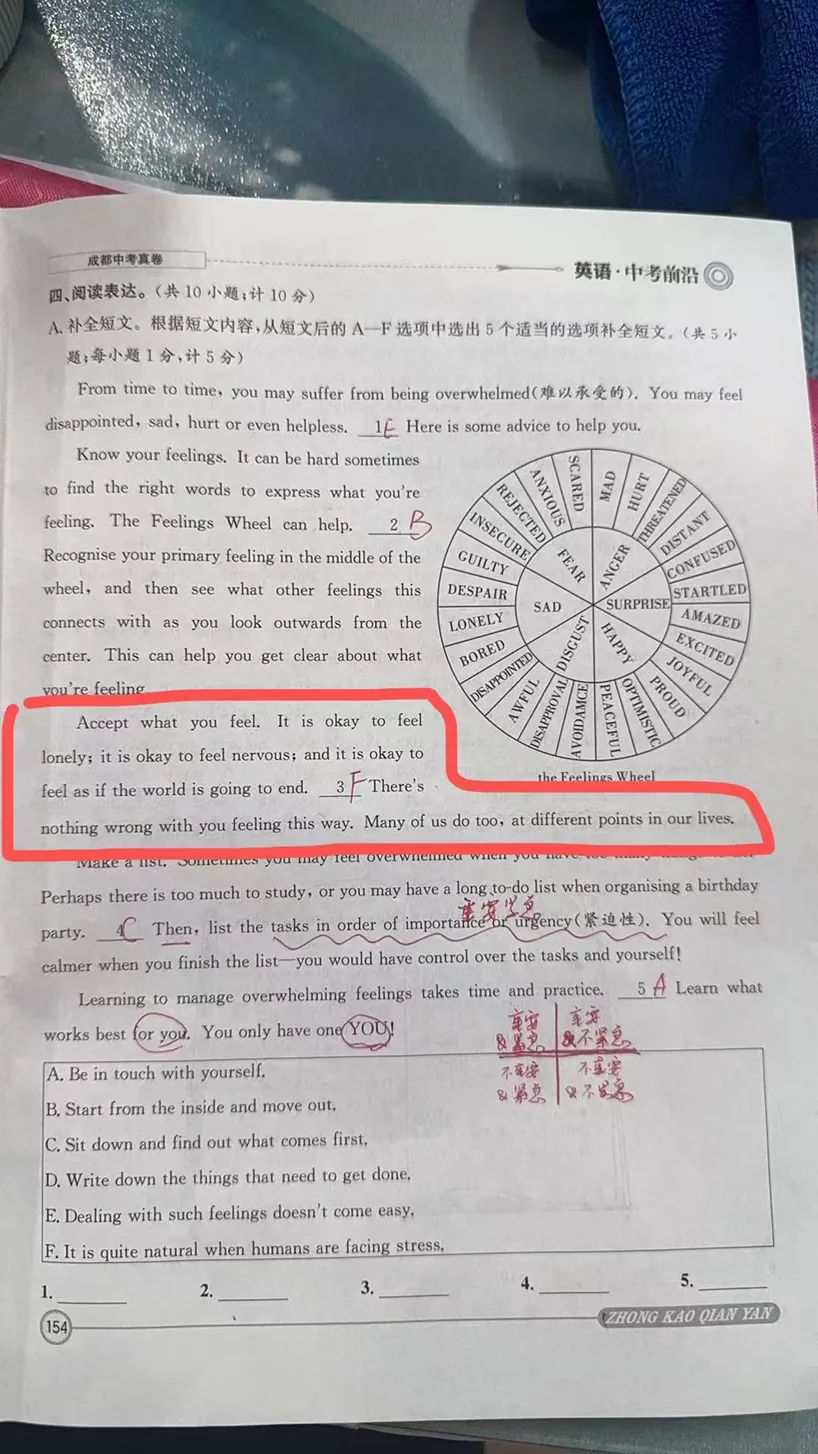 成都中考真卷
英语·中考前沿
四、阅读表达。(共 10 小题;计 10 分)
A. 补全短文。根据短文内容,从短文后的 A—F 选项中选出 5 个适当的选项补全短文。(共 5 小
题;每小题 1 分,计 5 分)
From time to time, you may suffer from being overwhelmed(难以承受的). You may feel
disappointed, sad, hurt or even helpless. 1 E Here is some advice to help you.
Know your feelings. It can be hard sometimes
to find the right words to express what you're
feeling. The Feelings Wheel can help. 2 B
Recognise your primary feeling in the middle of the
wheel, and then see what other feelings this
connects with as you look outwards from the
center. This can help you get clear about what
you're feeling
MAD
HURT
THREATENED
DISTANT
CONFUSED
STARTLED
AMAZED
EXCITED
JOYFUL
PROUD
OPTIMISTIC
PEACEFUL
AVOIDAMCE
DISAPPROVAL
AWFUL
DISAPPOINTED
BORED
LONELY
DESPAIR
GUILTY
INSECURE
REJECTED
ANXIOUS
SCARED
FEAR
ANGER
SURPRISE
HAPPY
DISGUST
SAD
the Feelings Wheel
Accept what you feel. It is okay to feel
lonely; it is okay to feel nervous; and it is okay to
feel as if the world is going to end. 3 F There's
nothing wrong with you feeling this way. Many of us do too, at different points in our lives.
Make a list. Sometimes you may feel overwhelmed when you have too many
Perhaps there is too much to study, or you may have a long to-do list when organising a birthday
重要 紧急
party. 4 C Then, list the tasks in order of importance or urgency(紧迫性). You will feel
calmer when you finish the list—you would have control over the tasks and yourself!
Learning to manage overwhelming feelings takes time and practice. 5 A Learn what
works best for you. You only have one YOU!
重要 重要
&紧急 &不紧急
不重要 不重要
&紧急 &不紧急
A. Be in touch with yourself.
B. Start from the inside and move out.
C. Sit down and find out what comes first.
D. Write down the things that need to get done.
E. Dealing with such feelings doesn't come easy.
F. It is quite natural when humans are facing stress.
1. 2. 3. 4. 5.
154
ZHONG KAO QIAN YAN